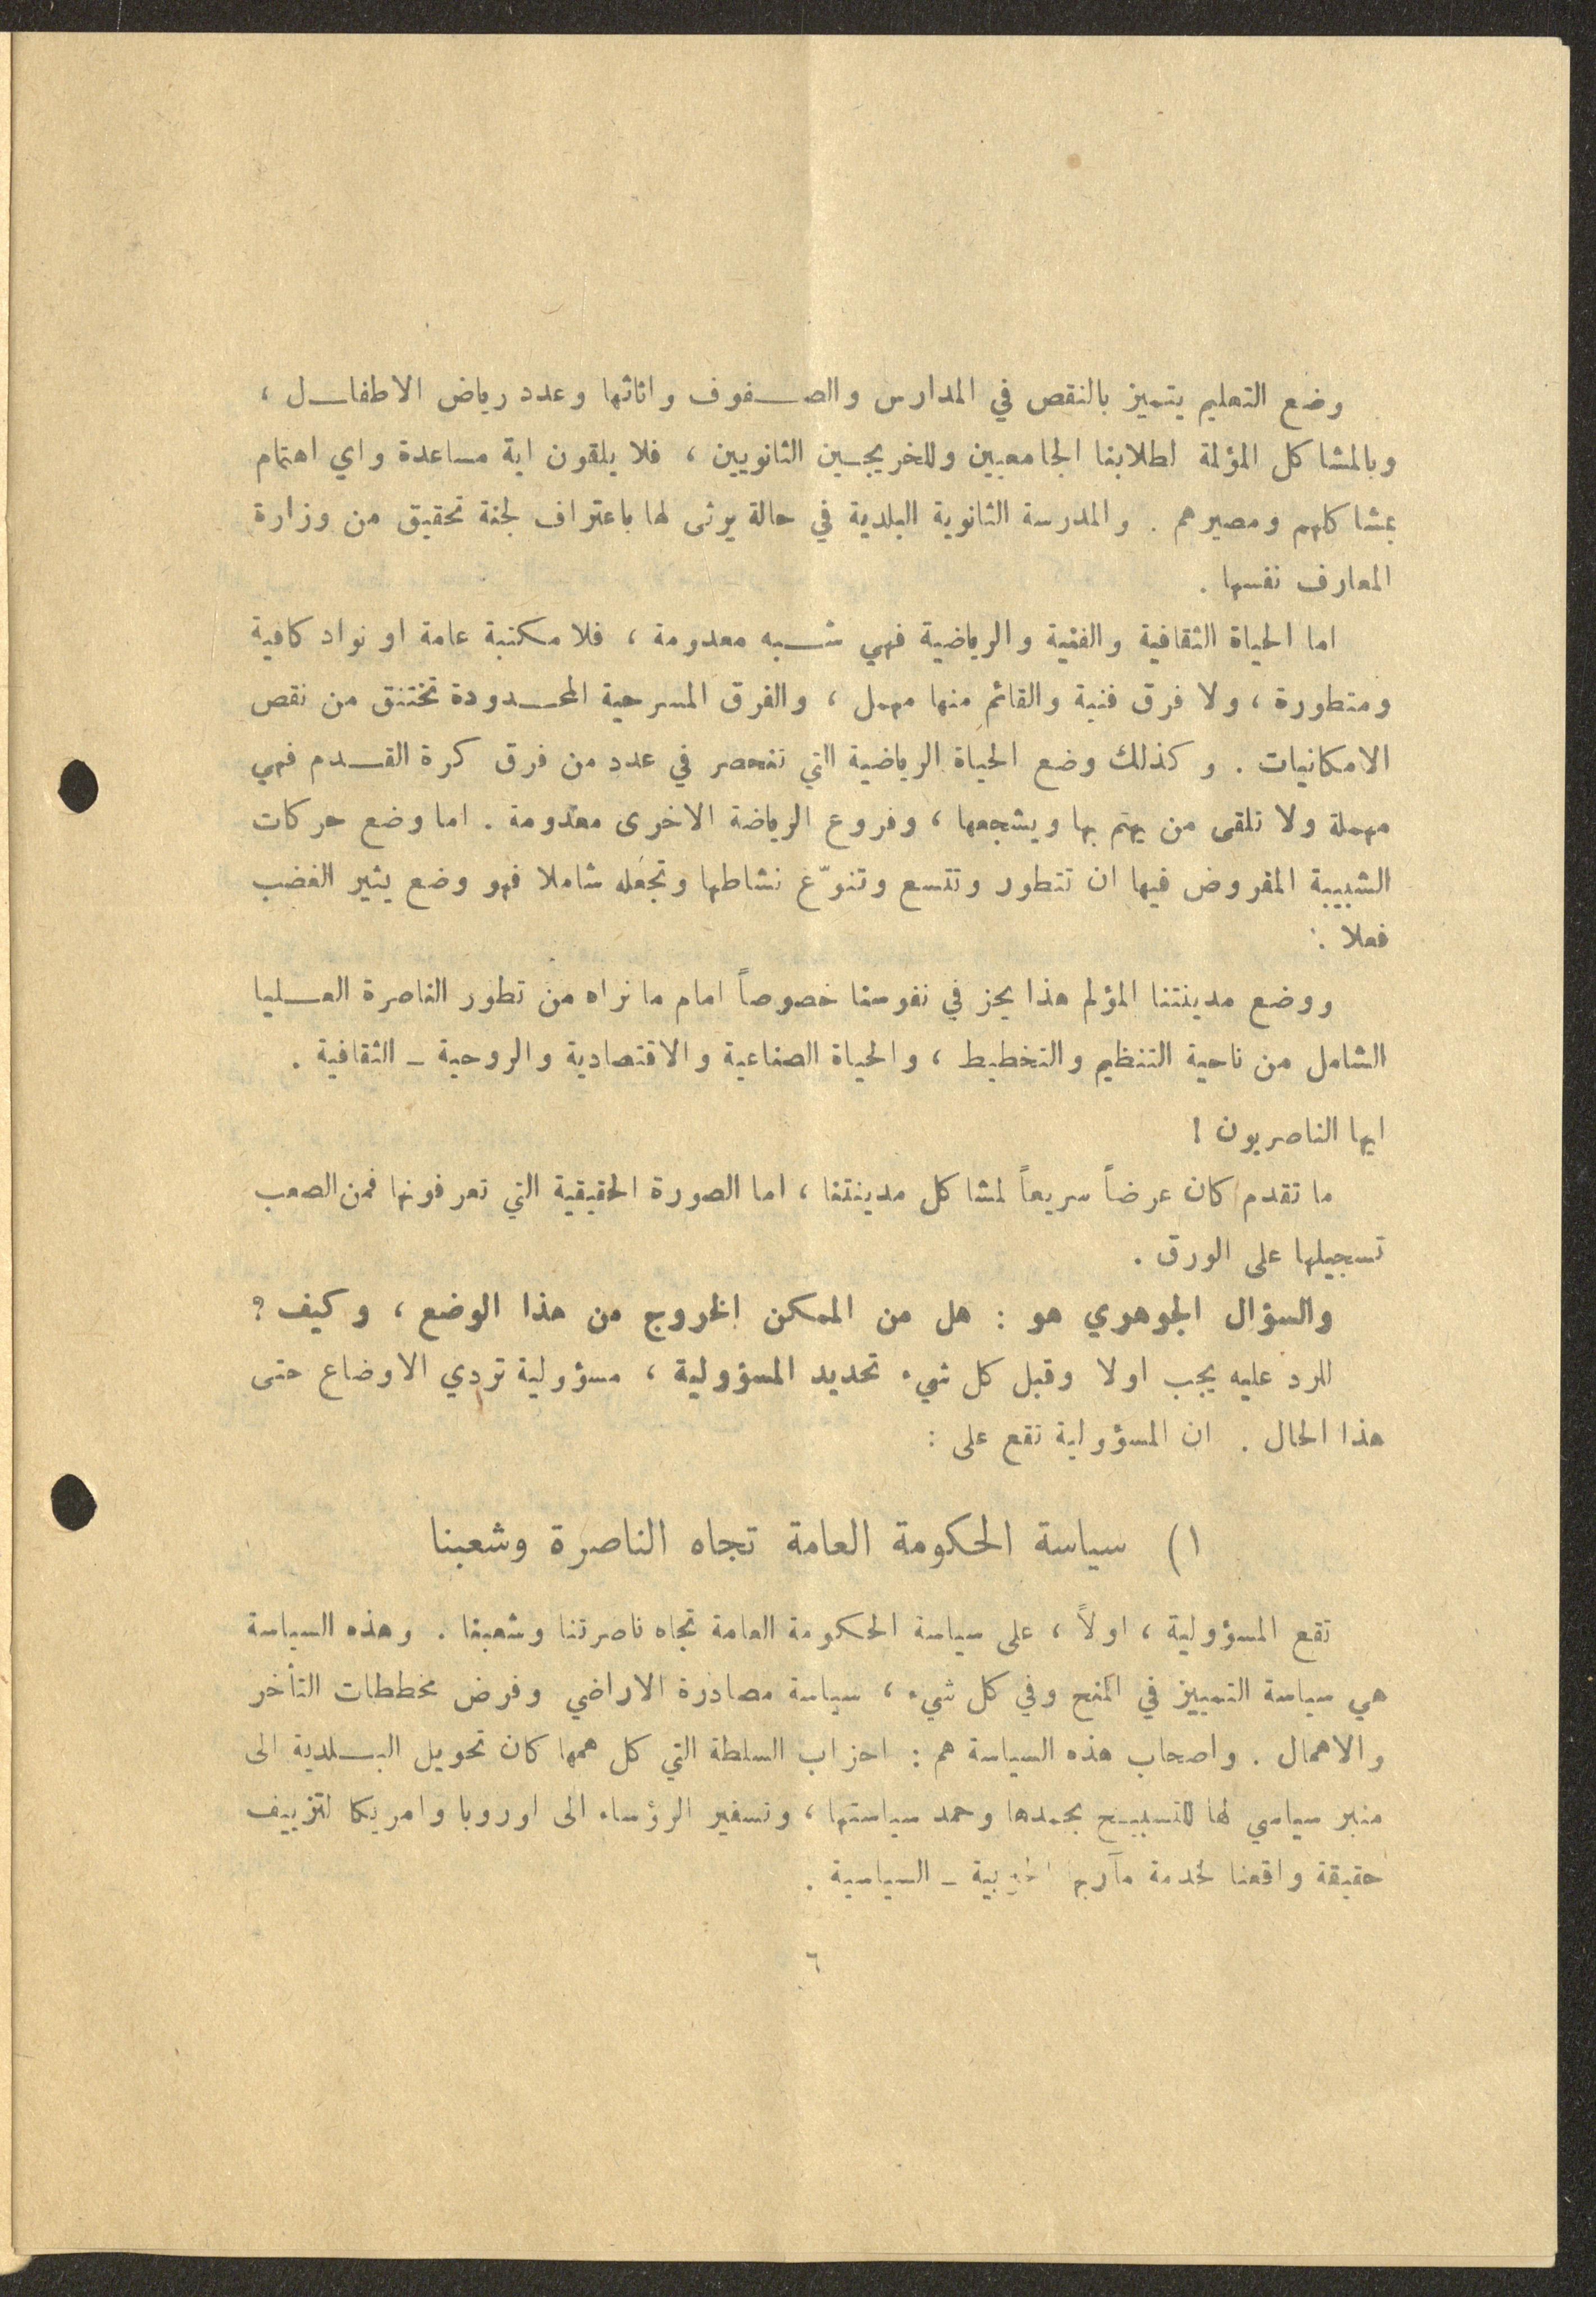 وضع التعليم يتميز بالنقص في المدارس والصفوف واثاثها وعدد رياض الاطفال ،
وبالمشاكل المؤلمة لطلابنا الجامعيين وللخريجين الثانويين ، فلا يلقون اية مساعدة واي اهتمام
بمشاكلهم ومصيرهم . والمدرسة الثانوية البلدية في حالة يرثى لها باعتراف لجنة تحقيق من وزارة
المعارف نفسها .
اما الحياة الثقافية والفنية والرياضية فهي شبه معدومة ، فلا مكتبة عامة او نواد كافية
ومتطورة ، ولا فرق فنية والقائم منها مهمل ، والفرق المسرحية المحدودة تختنق من نقص
الامكانيات . وكذلك وضع الحياة الرياضية التي تنحصر في عدد من فرق كرة القدم فهي
مهملة ولا تلقى من يهتم بها ويشجعها ، وفروع الرياضة الاخرى معدومة . اما وضع حركات
الشبيبة المفروض فيها ان تتطور وتتسع وتنوّع نشاطها وتجعله شاملا فهو وضع يثير الغضب
فعلا .
ووضع مدينتنا المؤلم هذا يحز في نفوسنا خصوصاً امام ما نراه من تطور الناصرة العليا
الشامل من ناحية التنظيم والتخطيط ، والحياة الصناعية والاقتصادية والروحية ـ الثقافية .
ايها الناصريون !
ما تقدم كان عرضاً سريعاً لمشاكل مدينتنا ، اما الصورة الحقيقية التي تعرفونها فمن الصعب
تسجيلها على الورق .
والسؤال الجوهري هو : هل من الممكن الخروج من هذا الوضع ، وكيف ؟
للرد عليه يجب اولا وقبل كل شيء تحديد المسؤولية ، مسؤولية تردي الاوضاع حتى
هذا الحال . ان المسؤولية تقع على :
١) سياسة الحكومة العامة تجاه الناصرة وشعبنا
تقع المسؤولية ، اولاً ، على سياسة الحكومة العامة تجاه ناصرتنا وشعبنا . وهذه السياسة
هي سياسة التمييز في المنح وفي كل شيء ، سياسة مصادرة الاراضي وفرض مخططات التأخر
والاهمال . واصحاب هذه السياسة هم : احزاب السلطة التي كل همها كان تحويل البلدية الى
منبر سياسي لها للتسبيح بحمدها وحمد سياستها ، وتسفير الرؤساء الى اوروبا وامريكا لتزييف
حقيقة واقعنا لخدمة مآربها ـ السياسية .
٦